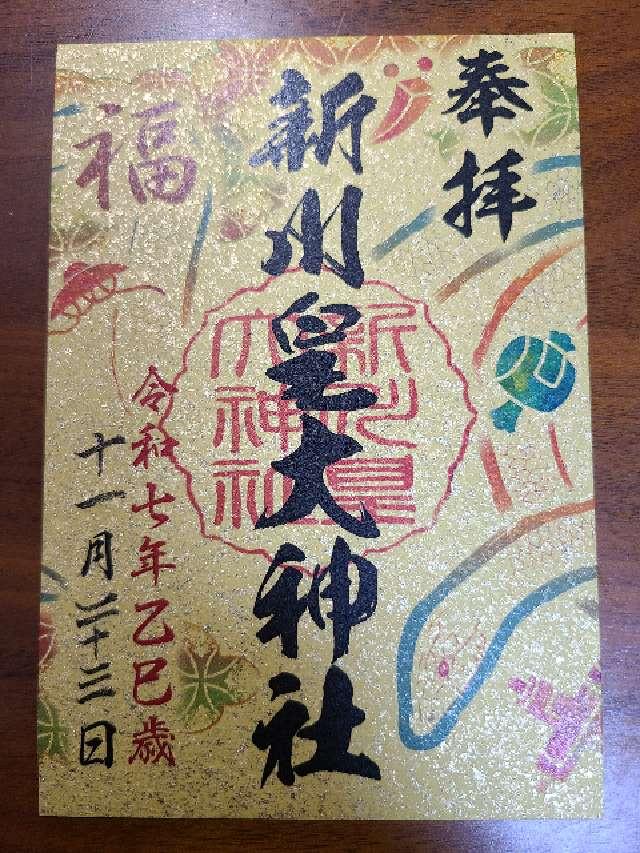 奉拝
新川皇大神社
新川皇
大神社
福
令和七年乙巳歳
十一月二十三日